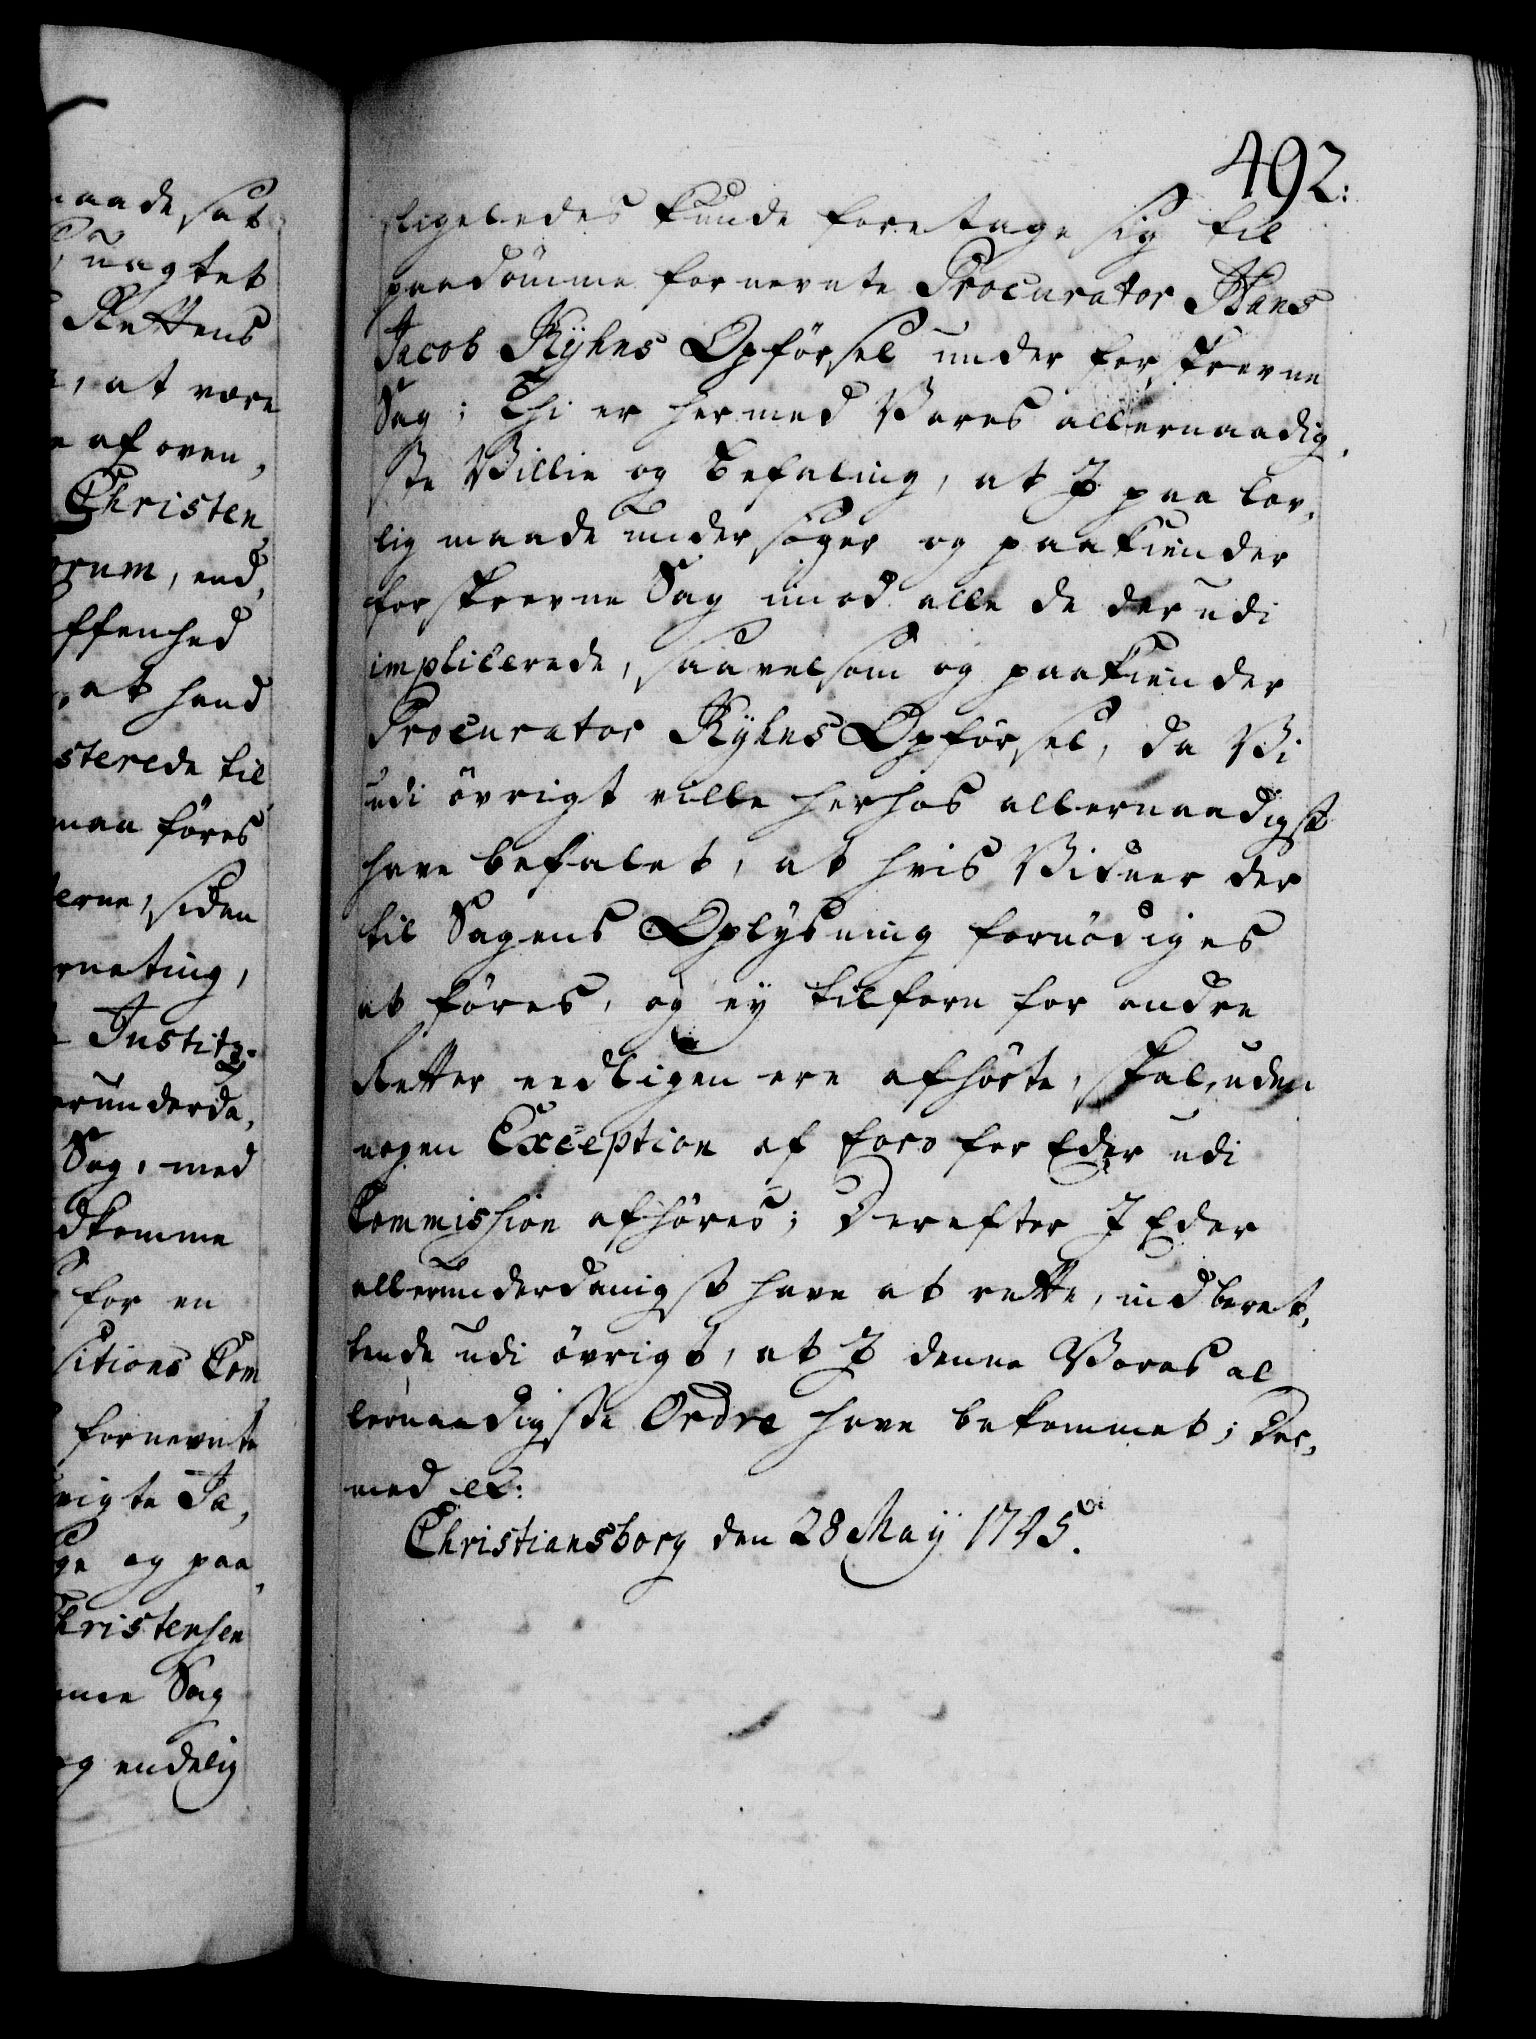 492:
ligeledes kunde foretage sig til
paadömme fornevnte Procurator Hans
Jacob Kyhns Opförsel under forskrevne
Sag; Thi er hermed Vores allernaadig,
ste Villie og Befaling, at I paa lov,
lig maade undersöger og paakiender
forskrevne Sag imod alle de derudi
implicerede, saavelsom og paakiender
Procurator Kyhns Opförsel, da Vi
udi övrigt ville herhos allernaadigst
have befalet, at hvis Vidner der
til Sagens Oplysning fornödiges
at föres, og ey tilforn for andre
Retter eedligen ere afhörte, skal, uden
nogen Exception af foro for Eder udi
Commission afhöres; Derefter I Eder
allerunderdanigst have at rette, indberet,
tende udi övrigt, at I denne Vores al
lernaadigste Ordre have bekommet; Der,
med etc:
Christiansborg den 28 May 1745.
aade sat
uagtet
Rettens
, at være
af oven,
Christen
orum, end,
ffenhed
, at hand
sterede til
maa föres
erne, siden
rneting,
Justitz
erunderda,
Sag, med
dkomme
for en
sitions Com
fornevnte
rigte Ja,
ge og paa,
Christensen
mme Sag
og endelig